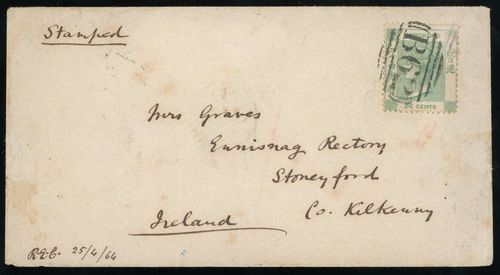 Stamped
B62
24 CENTS
Mrs Graves
Ennisnag Rectory
Stoneyford
Co. Kilkenny
Ireland
25/4/64